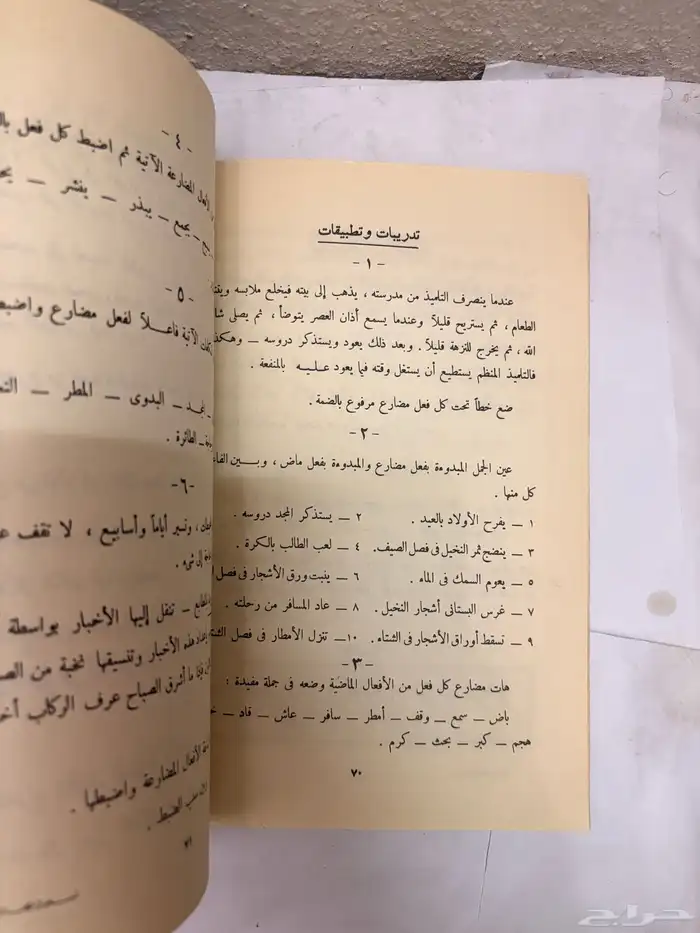 تدريبات وتطبيقات
- ١ -
عندما ينصرف التلميذ من مدرسته ، يذهب إلى بيته فيخلع ملابسه
الطعام ، ثم يستريح قليلاً وعندما يسمع أذان العصر يتوضأ ، ثم يصلى
الله ، ثم يخرج للنزهة قليلاً . وبعد ذلك يعود ويستذكر دروسه ــ وهكذا
فالتلميذ المنظم يستطيع أن يستغل وقته فيما يعود عليه بالمنفعة .
ضع خطاً تحت كل فعل مضارع مرفوع بالضمة .
- ٢ -
عين الجمل المبدوءة بفعل مضارع والمبدوءة بفعل ماض ، وبين
كل منها .
١ ــ يفرح الأولاد بالعيد . ٢ ــ يستذكر المجد دروسه .
٣ ــ ينضج ثمر النخيل فى فصل الصيف. ٤ ــ لعب الطالب بالكرة .
٥ ــ يعوم السمك فى الماء . ٦ ــ ينبت ورق الأشجار فى فصل
٧ ــ غرس البستانى أشجار النخيل . ٨ ــ عاد المسافر من رحلته .
٩ ــ تسقط أوراق الأشجار فى الشتاء . ١٠ــ تنزل الأمطار فى فصل الشتاء
- ٣ -
هات مضارع كل فعل من الأفعال الماضية وضعه فى جملة مفيدة :
باض ــ سمع ــ وقف ــ أمطر ــ سافر ــ عاش ــ قاد ــ
هجم ــ كبر ــ بحث ــ كرم .
٧٠
- ٤ -
الأفعال المضارعة الآتية ثم اضبط كل فعل
ــ يجمع ــ يبذر ــ ينشر ــ
- ٥ -
الآتية فاعلاً لفعل مضارع
ــ البدوى ــ المطر ــ
ــ الطائرة .
- ٦ -
، وتسير أياماً وأسابيع ، لا تقف
إلى شىء .
ــ تنقل إليها الأخبار بواسطة
هذه الأخبار وتنسيقها نخبة من
ما أشرق الصباح عرف الركاب
الأفعال المضارعة واضبطها .
الضبط .
٧١
حراج